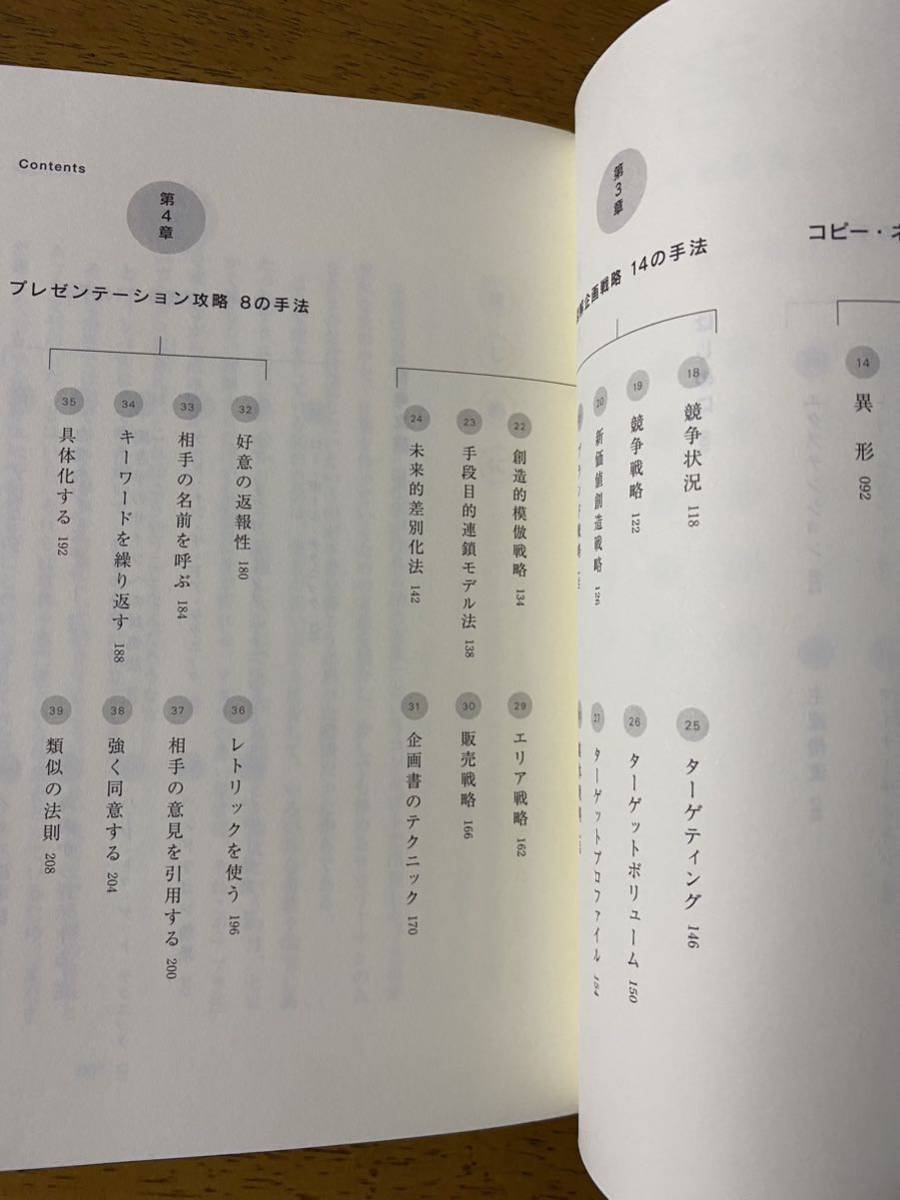 コピー・
14
異形 092
第3章
企画戦略 14の手法
18
競争状況 118
19
競争戦略 122
20
新価値創造戦略 126
22
創造的模倣戦略 134
23
手段目的連鎖モデル法 138
24
未来的差別化法 142
25
ターゲティング 146
26
ターゲットボリューム 150
27
ターゲットプロファイル 154
29
エリア戦略 162
30
販売戦略 166
31
企画書のテクニック 170
Contents
第4章
プレゼンテーション攻略 8の手法
32
好意の返報性 180
33
相手の名前を呼ぶ 184
34
キーワードを繰り返す 188
35
具体化する 192
36
レトリックを使う 196
37
相手の意見を引用する 200
38
強く同意する 204
39
類似の法則 208